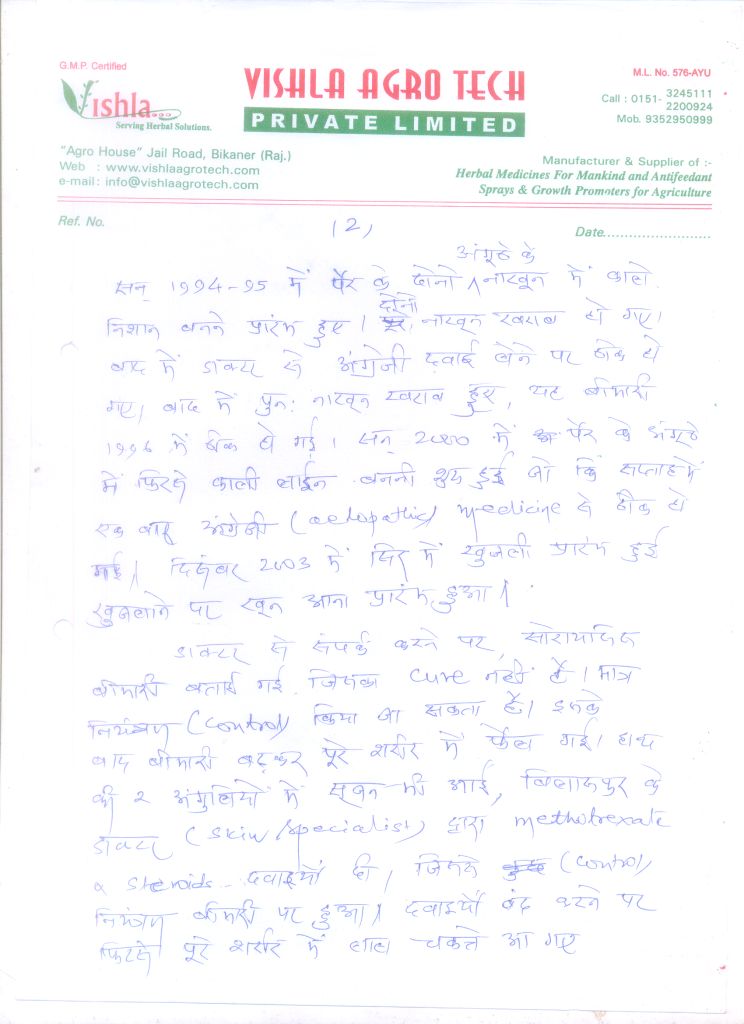 G.M.P. Certified
Vishla...
Serving Herbal Solutions.
VISHLA AGRO TECH
PRIVATE LIMITED
M.L. No. 576-AYU
Call : 0151- 3245111
2200924
Mob. 9352950999
"Agro House" Jail Road, Bikaner (Raj.)
Web : www.vishlaagrotech.com
e-mail : info@vishlaagrotech.com
Manufacturer & Supplier of :-
Herbal Medicines For Mankind and Antifeedant
Sprays & Growth Promoters for Agriculture
Ref. No.
(2)
Date..........................
अंगूठे के
सन् 1994-95 में पैर के दोनों नाखून में काले
निशान बनने प्रारंभ हुए। दोनों नाखून खराब हो गए।
बाद में डाक्टर से अंग्रेजी दवाई लेने पर ठीक हो
गए। बाद में पुनः नाखून खराब हुए, यह बीमारी
1996 में ठीक हो गई। सन् 2000 में पैर के अंगूठे
में फिरसे काली लाईन बननी शुरू हुई जो कि सप्ताह में
एक बार अंग्रेजी (aelopathic) medicine से ठीक हो
गई। दिसंबर 2003 में सिर में खुजली प्रारंभ हुई
खुजलाने पर खून आना प्रारंभ हुआ।
डाक्टर से संपर्क करने पर, सोरायसिस
बीमारी बताई गई जिसका cure नहीं है। मात्र
नियंत्रण (control) किया जा सकता है। इसके
बाद बीमारी बढ़कर पूरे शरीर में फैल गई। हाथ
की 2 अंगुलियों में सूजन भी आई, बिलासपुर के
डाक्टर (skin specialist) द्वारा methotrexate
& steroids दवाइयाँ दी, जिससे (control)
नियंत्रण बीमारी पर हुआ। दवाइयाँ बंद करने पर
फिरसे पूरे शरीर में लाल चकत्ते आ गए